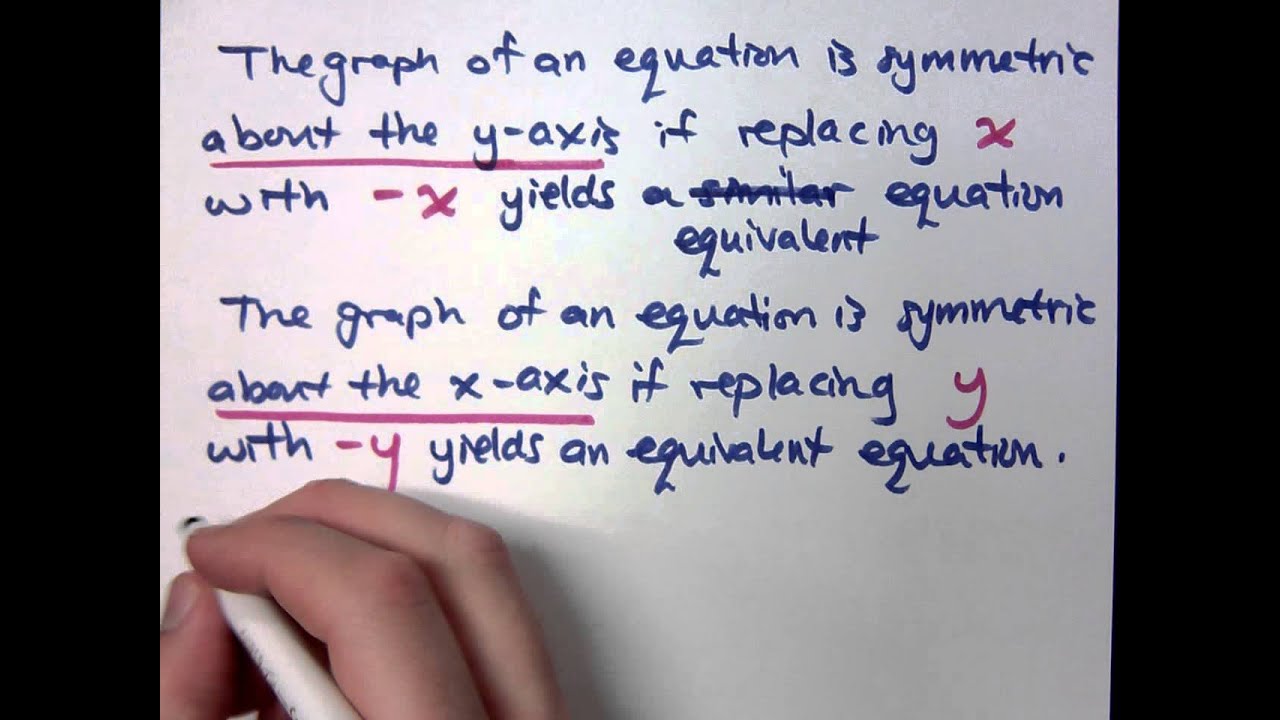 The graph of an equation is symmetric
about the y-axis if replacing x
with -x yields a similar equation
equivalent
The graph of an equation is symmetric
about the x-axis if replacing y
with -y yields an equivalent equation.